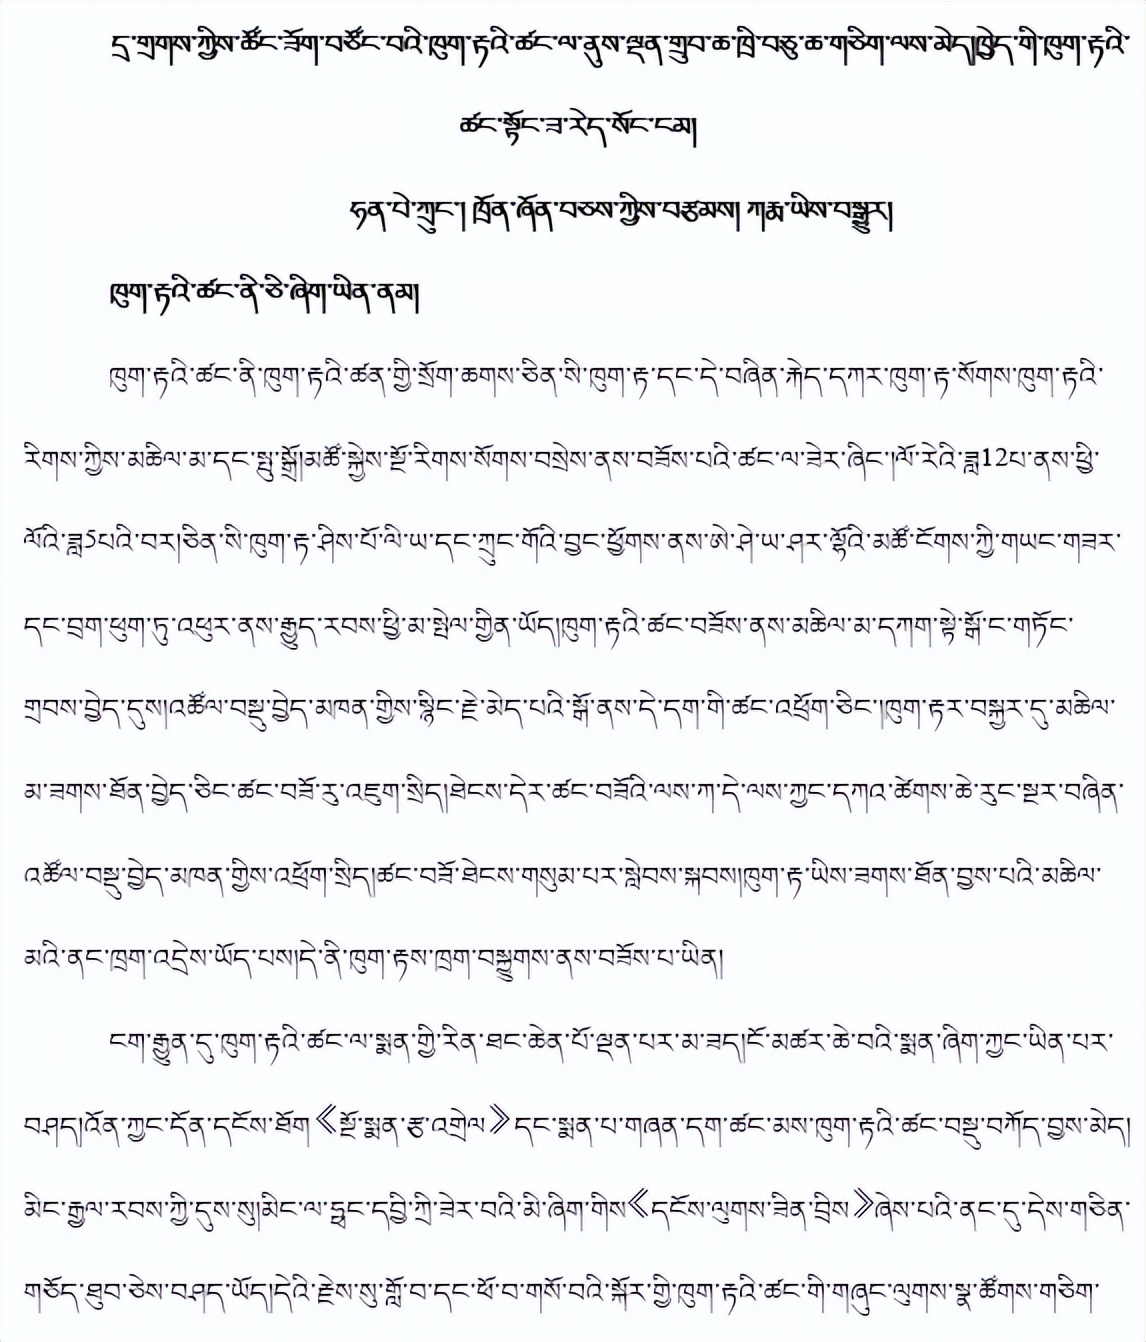 དྲ་གྲགས་ཀྱིས་ཚོང་ཟོག་བཙོང་བའི་ཁུག་རྟའི་ཚང་ལ་ནུས་ལྡན་གྲུབ་ཆ་ཁྲི་བཅུ་ཆ་གཅིག་ལས་མེད།ཁྱེད་ཀྱི་ཁུག་རྟའི་
ཚང་སྟོང་ཟ་རེད་སོང་ངམ།
ཧན་པེ་ཀྲུང་། ཁྲོན་ཞོན་བཅས་ཀྱིས་བརྩམས། ཀརྨ་ཡིས་བསྒྱུར།
ཁུག་རྟའི་ཚང་ནི་ཅི་ཞིག་ཡིན་ནམ།
ཁུག་རྟའི་ཚང་ནི་ཁུག་རྟའི་ཚན་གྱི་སྲོག་ཆགས་ཅིན་སི་ཁུག་རྟ་དང་དེ་བཞིན་རྐེད་དཀར་ཁུག་རྟ་སོགས་ཁུག་རྟའི་
རིགས་ཀྱིས་མཆིལ་མ་དང་སྤུ་སྒྲོ།མཚོ་སྐྱེས་སྔོ་རིགས་སོགས་བསྲེས་ནས་བཟོས་པའི་ཚང་ལ་ཟེར་ཞིང་།ལོ་རེའི་ཟླ12པ་ནས་ཕྱི་
ལོའི་ཟླ5པའི་བར།ཅིན་སི་ཁུག་རྟ་ཤིས་པོ་ལི་ཡ་དང་ཀྲུང་གོའི་བྱང་ཕྱོགས་ནས་ཨེ་ཤེ་ཡ་ཤར་ལྷོའི་མཚོ་ངོགས་ཀྱི་གཡང་གཟར་
དང་བྲག་ཕུག་ཏུ་འཕུར་ནས་རྒྱུད་རབས་ཕྱི་མ་སྤེལ་གྱིན་ཡོད།ཁུག་རྟའི་ཚང་བཟོས་ནས་མཆིལ་མ་དཀག་སྟེ་སྒོ་ང་གཏོང་
གྲབས་བྱེད་དུས།འཚོལ་བསྡུ་བྱེད་མཁན་གྱིས་སྙིང་རྗེ་མེད་པའི་སྒོ་ནས་དེ་དག་གི་ཚང་འཕྲོག་ཅིང་།ཁུག་རྟར་བསྐྱར་དུ་མཆིལ་
མ་ཟགས་ཐོན་བྱེད་ཅིང་ཚང་བཟོ་རུ་འཇུག་སྲིད།ཐེངས་དེར་ཚང་བཟོའི་ལས་ཀ་དེ་ལས་ཀྱང་དཀའ་ཚེགས་ཆེ་རུང་སྔར་བཞིན་
འཚོལ་བསྡུ་བྱེད་མཁན་གྱིས་འཕྲོག་སྲིད།ཚང་བཟོ་ཐེངས་གསུམ་པར་སླེབས་སྐབས།ཁུག་རྟ་ཡིས་ཟགས་ཐོན་བྱས་པའི་མཆིལ་
མའི་ནང་ཁྲག་འདྲེས་ཡོད་པས།དེ་ནི་ཁུག་རྟས་ཁྲག་བསྐྱུགས་ནས་བཟོས་པ་ཡིན།
ངག་རྒྱུན་དུ་ཁུག་རྟའི་ཚང་ལ་སྨན་གྱི་རིན་ཐང་ཆེན་པོ་ལྡན་པར་མ་ཟད།ངོ་མཚར་ཆེ་བའི་སྨན་ཞིག་ཀྱང་ཡིན་པར་
བཤད།འོན་ཀྱང་དོན་དངོས་ཐོག《སྔོ་སྨན་རྩ་འགྲེལ》དང་སྨན་པ་གཞན་དག་ཚང་མས་ཁུག་རྟའི་ཚང་བསྡུ་བཀོད་བྱས་མེད།
མིང་རྒྱལ་རབས་ཀྱི་དུས་སུ།མིང་ལ་ཧྥང་དབྱི་ཀྲི་ཟེར་བའི་མི་ཞིག་གིས《དངོས་ལུགས་ཟིན་བྲིས》ཞེས་པའི་ནང་དུ་དེས་གཅིན་
གཅོད་ཐུབ་ཅེས་བཤད་ཡོད།དེའི་རྗེས་སུ་གློ་བ་དང་ཕོ་བ་གསོ་བའི་སྐོར་གྱི་ཁུག་རྟའི་ཚང་གི་གཞུང་ལུགས་སྣ་ཚོགས་གཅིག་